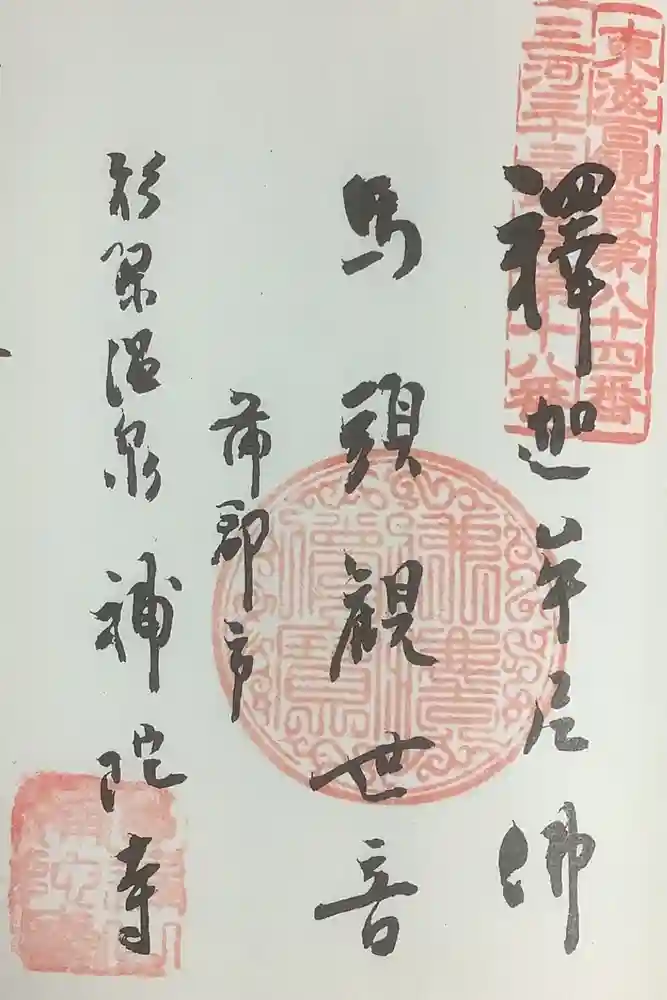 東海百観音第八十四番
三河三十三
十八番
釋迦牟尼佛
馬頭観世音
蒲郡市
形原温泉 補陀寺